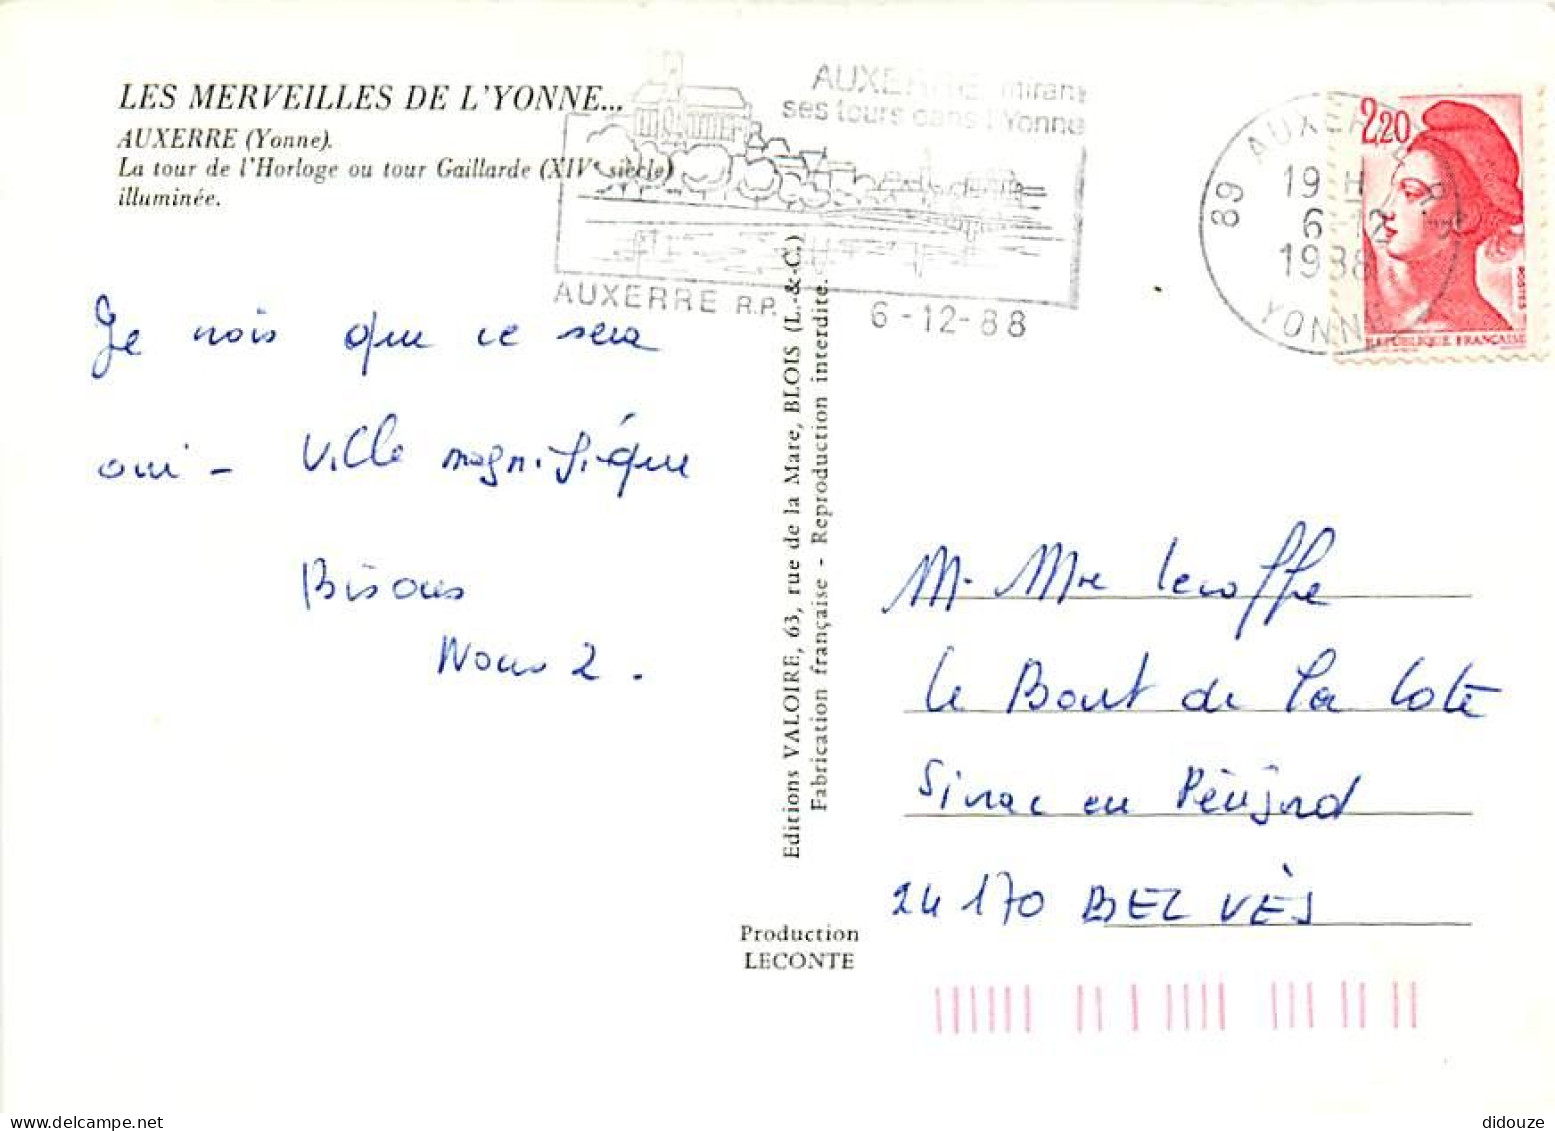 LES MERVEILLES DE L'YONNE...
AUXERRE (Yonne).
La tour de l'Horloge ou tour Gaillarde (XIVe siècle)
illuminée.
AUXERRE mirant
ses tours dans l'Yonne
AUXERRE R.P. 6-12-88
89 AUXERRE R.P.
19 H
6-12
1988
YONNE
2,20
RÉPUBLIQUE FRANÇAISE
Je crois que ce sera
oui - Ville magnifique
Bisous
Nous 2.
Editions VALOIRE, 63, rue de la Mare, BLOIS (L.-&-C.)
Fabrication française - Reproduction interdite.
Production
LECONTE
M. Mme Lecoffre
Le Bout de la Cote
en Périgord
24170 BELVÈS
didouze